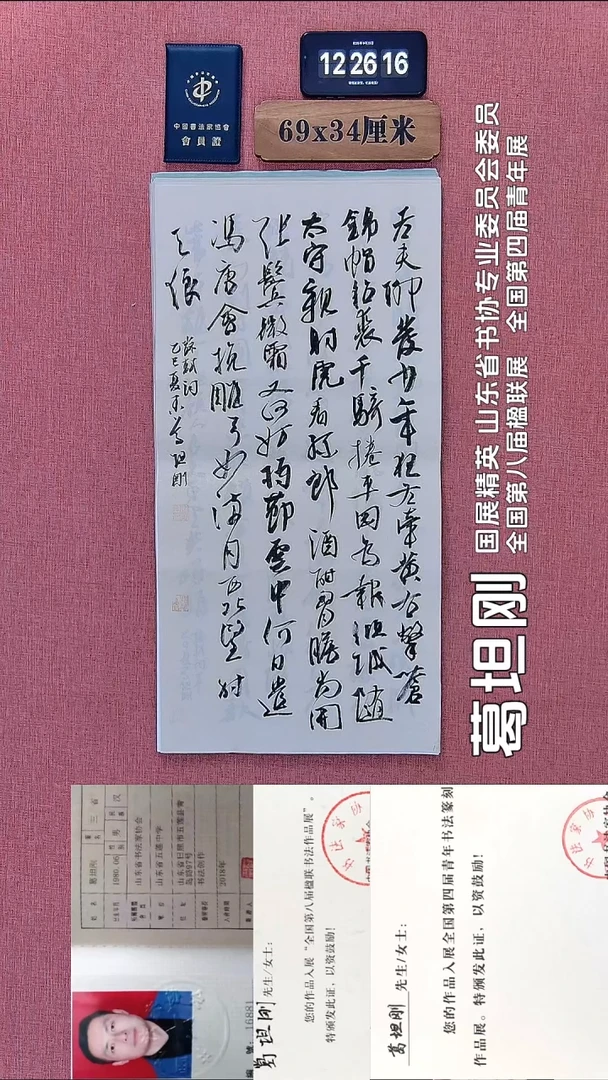 12 26 16
中國書法家協會
會員證
69x34厘米
老夫聊發少年狂左牽黃右擎蒼
錦帽貂裘千騎捲平岡為報傾城隨
太守親射虎看孫郎酒酣胸膽尚開
張鬢微霜又何妨持節雲中何日遣
馮唐會挽雕弓如滿月西北望射
天狼
蘇軾詞
乙巳夏末葛坦剛
国展精英 山东省书协专业委员会委员
全国第八届楹联展 全国第四届青年展
葛坦刚
姓名 葛坦刚
1980.06
男
汉
山东省书法家协会
山东省五莲中学
书法创作
2018年
編號：16881
葛坦刚 先生/女士：
您的作品入展“全国第八届楹联书法作品展”。
特颁发此证，以资鼓励！
葛坦刚 先生/女士：
您的作品入展全国第四届青年书法篆刻
作品展。特颁发此证，以资鼓励！